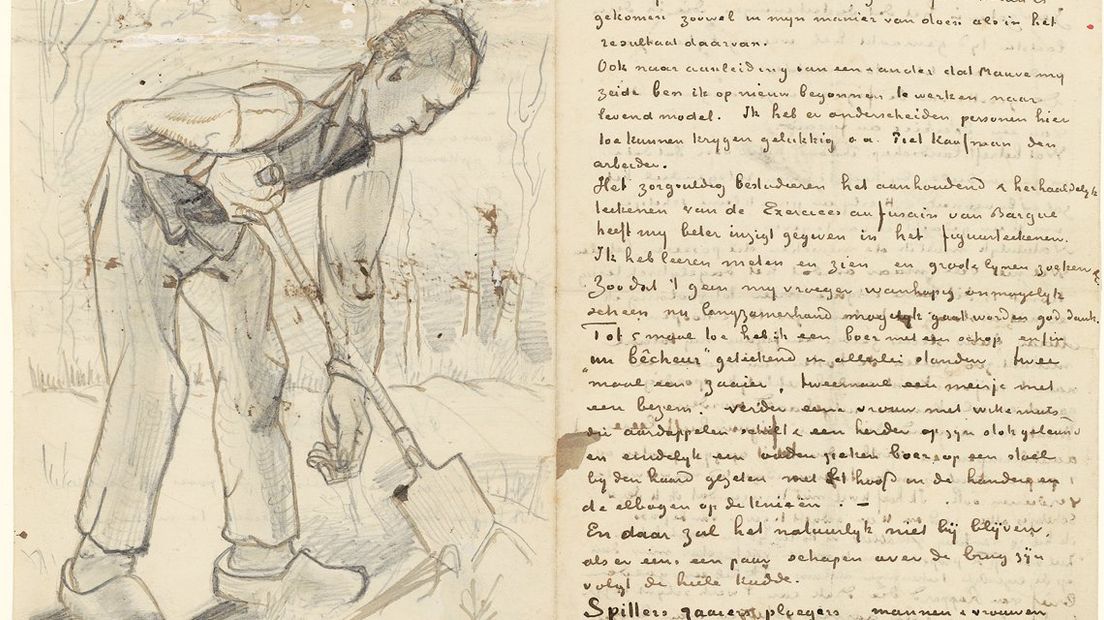 gekomen zoowel in mijn manier van doen als in het
resultaat daarvan.
Ook naar aanleiding van een & ander dat Mauve my
zeide ben ik op nieuw begonnen te werken naar
levend model. Ik heb er onderscheiden personen hier
toe kunnen krygen gelukkig o.a. Piet Kaufman den
arbeider.
Het zorgvuldig bestuderen het aanhoudend & herhaaldelyk
teekenen van de Exercices au fusain van Bargue
heeft my beter inzigt gegeven in het figuurteekenen.
Ik heb leeren meten en zien en groote lynen zoeken &
Zoo dat 't geen my vroeger wanhopig onmogelyk
scheen nu langzamerhand mogelyk gaat worden god dank.
Tot 5 maal toe heb ik een boer met een schop enfin
"un bêcheur" geteekend in allerlei standen, twee
maal een zaaier, tweemaal een meisje met
een bezem. Verder eene vrouw met witte muts
die aardappelen schilt & een herder op zyn stok geleund
en eindelyk een ouden zieken boer op een stoel
by den haard gezeten met het hoofd in de handen en
de elbogen op de knieën. —
En daar zal het natuurlyk niet by blyven,
als er eens een paar schapen over de brug zyn
volgt de heele kudde.
Spitters zaaiers ploegers mannen & vrouwen